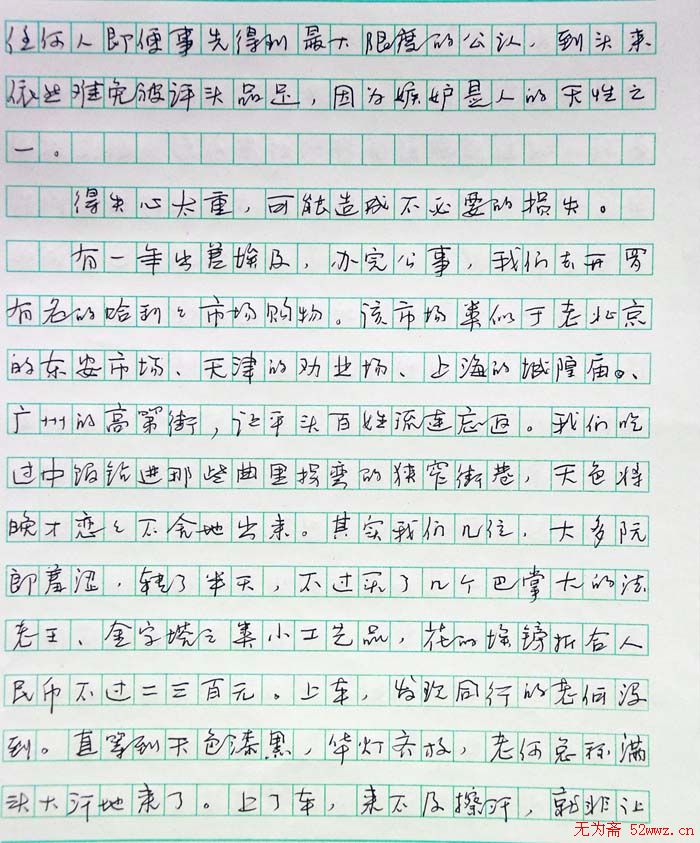 任何人即便事先得到最大限度的公认，到头来
依然难免被评头品足，因为嫉妒是人的天性之
一。
得失心太重，可能造成不必要的损失。
有一年出差埃及，办完公事，我们去开罗
有名的哈利々市场购物。该市场类似于老北京
的东安市场、天津的劝业场、上海的城隍庙、
广州的高第街，让平头百姓流连忘返。我们吃
过中饭钻进那些曲里拐弯的狭窄街巷，天色将
晚才恋々不舍地出来。其实我们几位，大多阮
郎羞涩，转了半天，不过买了几个巴掌大的法
老王、金字塔之类小工艺品，花的埃镑折合人
民币不过二三百元。上车，发现同行的老何没
到。直等到天色漆黑，华灯齐放，老何总算满
头大汗地来了。上了车，来不及擦汗，就非让
无为斋 52wwz.cn